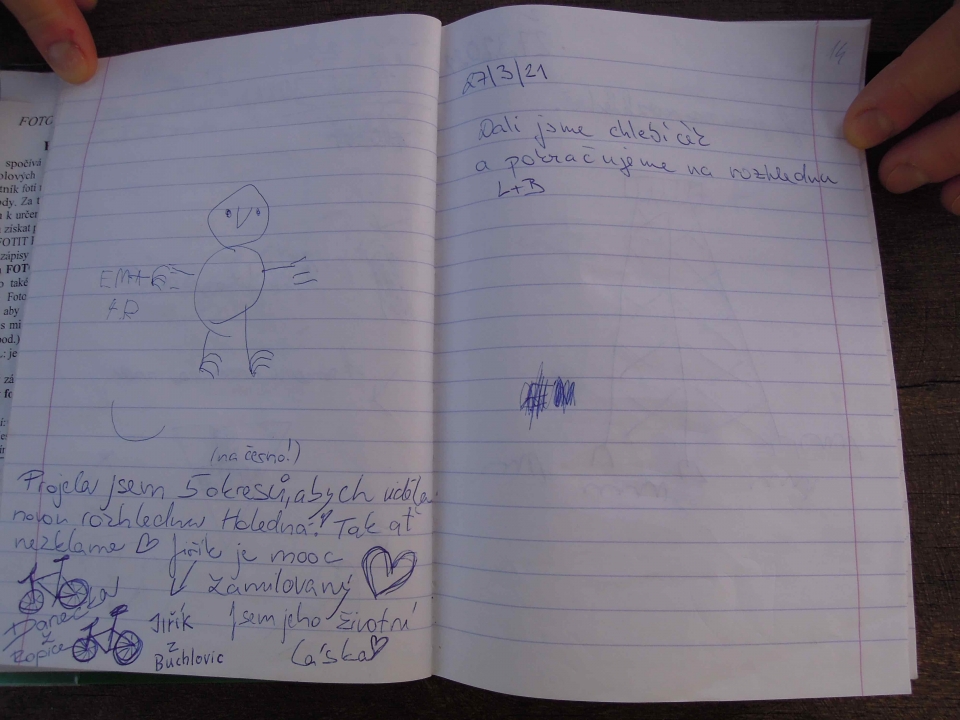 FOTO
spočívá
olových
tník fotí
ody. Za t
k určen
získat p
FOTIT
zápisy
FOT
o také
Foto
aby
s mi
pod.)
: je
zá
fo
EMA
(na česno!)
Projela jsem 5 okresů, abych uděla
novou rozhlednu Holedná! Tak ať
nezklame Jiřík je mooc
zamilovaný
Jsem jeho životní
láska
z
Jiřík
z
Buchlovic
14
27/3/21
Dali jsme chlebíček
a pokračujeme na rozhlednu
L+B